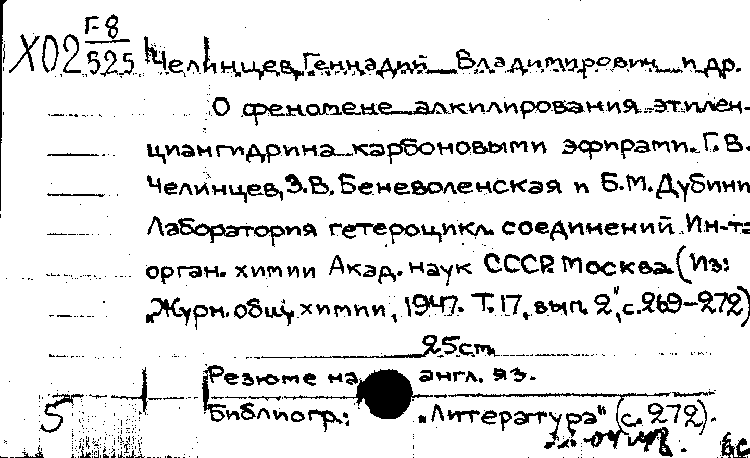 Х02 F-8/525
Челинцев, Геннадий Владимирович и др.
О феномене алкилирования этилен-
циангидрина карбоновыми эфирами. Г.В.
Челинцев, З.В. Беневоленская и Б.М. Дубини
Лаборатория гетероцикл. соединений Ин-та
орган. химии Акад. наук СССР. Москва. (Из:
„Журн. общ. химии, 1947. Т. 17, вып. 2", с. 269-272)
25 см.
Резюме на англ. яз.
Библиогр.: „Литература" (с. 272).
5